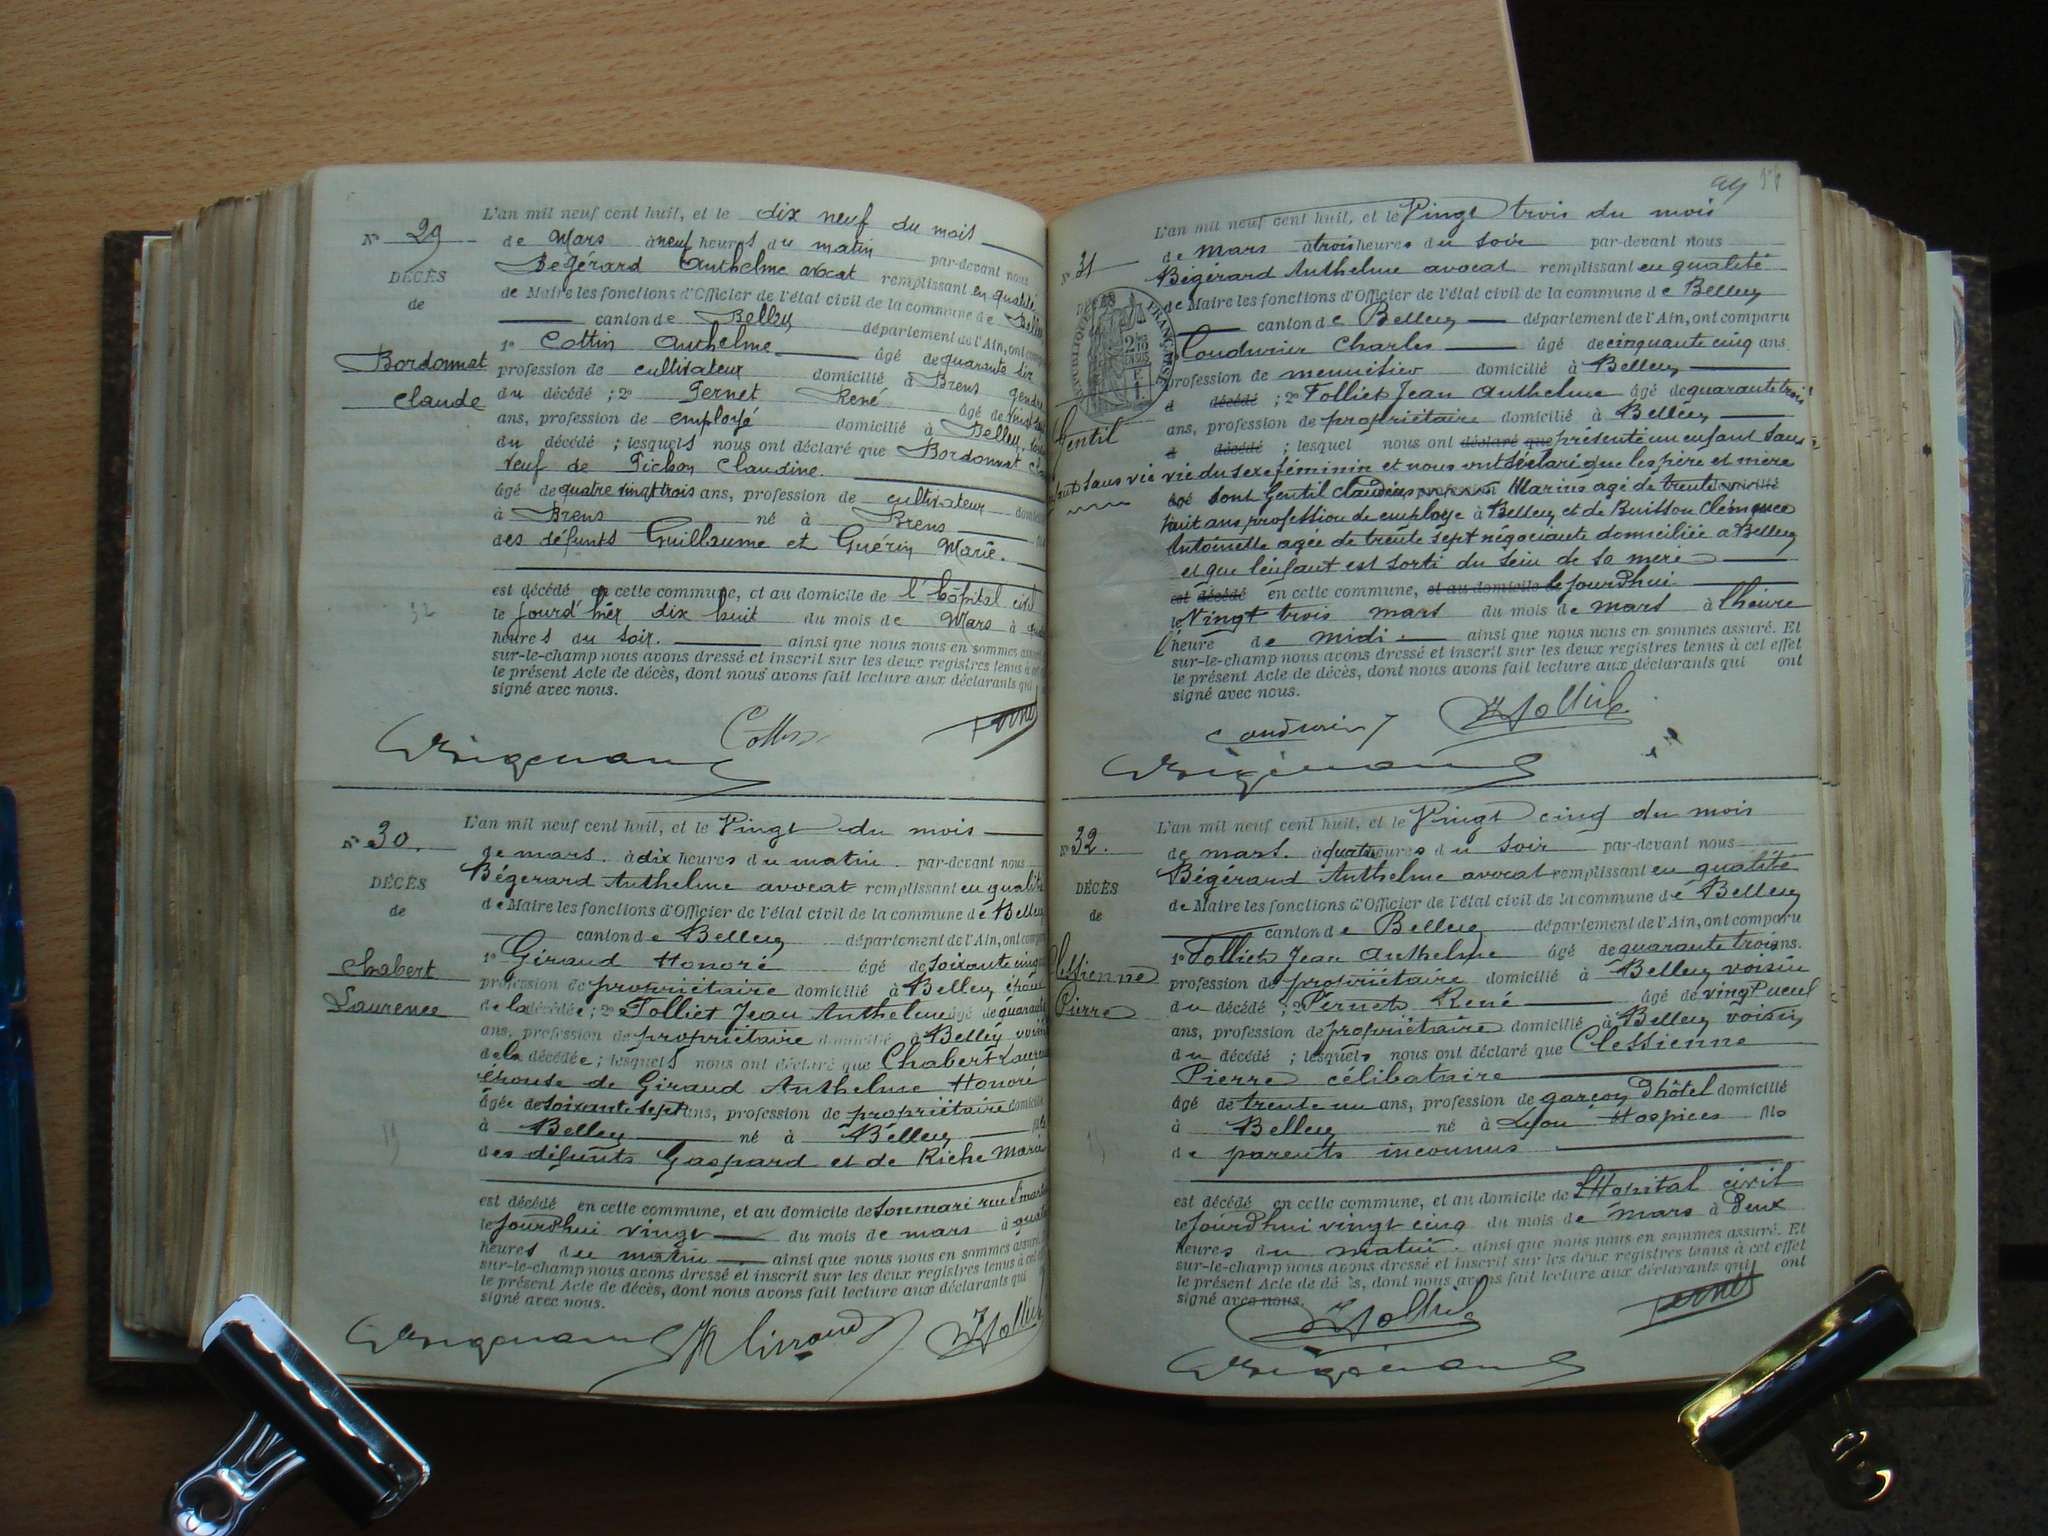 N° 29
DÉCÈS
de
Bordonnat
Claude
L'an mil neuf cent huit, et le dix neuf du mois
de Mars à neuf heures du matin par-devant nous
Bégérard Anthelme avocat remplissant en qualité
de Maire les fonctions d'Officier de l'état civil de la commune de
canton de Belley département de l'Ain, ont
1° Cottin Anthelme âgé de quarante six
profession de cultivateur domicilié à Brens gendre
du décédé ; 2° Pernet René âgé de
ans, profession de employé domicilié à Belley
du décédé ; lesquels nous ont déclaré que Bordonnat
veuf de Pichon Claudine
âgé de quatre vingt trois ans, profession de cultivateur
à Brens né à Brens
des défunts Guillaume et Guérin Marie.
est décédé en cette commune, et au domicile de l'hôpital civil
le jourd'hier dix huit du mois de Mars à
heures du soir. ainsi que nous nous en sommes
sur-le-champ nous avons dressé et inscrit sur les deux registres tenus à cet
le présent Acte de décès, dont nous avons fait lecture aux déclarants qui
signé avec nous.
Cottin
Pernet
N° 30.
DÉCÈS
de
Chabert
Laurence
L'an mil neuf cent huit, et le Vingt du mois
de mars. à dix heures du matin. par-devant nous
Bégérard Anthelme avocat remplissant en qualité
de Maire les fonctions d'Officier de l'état civil de la commune de Belley
canton de Belley département de l'Ain, ont
1° Giraud Honoré âgé de soixante cinq
profession de propriétaire domicilié à Belley époux
de la décédée ; 2° Folliet Jean Anthelme âgé de quarante
ans, profession de propriétaire domicilié à Belley voisin
de la décédée ; lesquels nous ont déclaré que Chabert
épouse de Giraud Anthelme Honoré
âgée de soixante sept ans, profession de propriétaire
à Belley né à Belley
des défunts Gaspard et de Riche Marie
est décédé en cette commune, et au domicile de son mari rue
le jourd'hui vingt du mois de mars à
heures du matin ainsi que nous nous en sommes assuré.
sur-le-champ nous avons dressé et inscrit sur les deux registres tenus à cet
le présent Acte de décès, dont nous avons fait lecture aux déclarants qui
signé avec nous.
H Giraud
J Folliet
99
N° 31
DÉCÈS
RÉPUBLIQUE FRANÇAISE
Gentil
sans vie
L'an mil neuf cent huit, et le Vingt trois du mois
de mars à trois heures du soir par-devant nous
Bégérard Anthelme avocat remplissant en qualité
de Maire les fonctions d'Officier de l'état civil de la commune de Belley
canton de Belley département de l'Ain, ont comparu
Coudurier Charles âgé de cinquante cinq ans.
profession de menuisier domicilié à Belley
d décédé ; 2° Folliet Jean Anthelme âgé de quarante trois
ans, profession de propriétaire domicilié à Belley
d décédé ; lesquel nous ont déclaré que présenté un enfant sans
vie du sexe féminin et nous ont déclaré que les père et mère
âgé sont Gentil Claudius Marius agé de trente
huit ans profession de employe à Belley et de Buisson Clémence
Antoinette agée de trente sept négociante domiciliée à Belley
et que l'enfant est sorti du sein de sa mere
est décédé en cette commune, et au domicile de le jourd'hui
le Vingt trois mars du mois de mars à l'heure
heure de midi ainsi que nous nous en sommes assuré. Et
sur-le-champ nous avons dressé et inscrit sur les deux registres tenus à cet effet
le présent Acte de décès, dont nous avons fait lecture aux déclarants qui ont
signé avec nous.
Coudurier
J Folliet
N° 32.
DÉCÈS
de
Clessienne
Pierre
L'an mil neuf cent huit, et le Vingt cinq du mois
de mars. à quatre heures du soir par-devant nous
Bégérard Anthelme avocat remplissant en qualité
de Maire les fonctions d'Officier de l'état civil de la commune de Belley
canton de Belley département de l'Ain, ont comparu
1° Folliet Jean Anthelme âgé de quarante trois ans.
profession de propriétaire domicilié à Belley voisin
du décédé ; 2° Pernet René âgé de vingt neuf
ans, profession de propriétaire domicilié à Belley voisin
du décédé ; lesquels nous ont déclaré que Clessienne
Pierre célibataire
âgé de trente un ans, profession de garçon d'hôtel domicilié
à Belley né à Lyon Hospices fils
de parents inconnus
est décédé en cette commune, et au domicile de l'Hopital civil
le jourd'hui vingt cinq du mois de mars à deux
heures du matin. ainsi que nous nous en sommes assuré. Et
sur-le-champ nous avons dressé et inscrit sur les deux registres tenus à cet effet
le présent Acte de décès, dont nous avons fait lecture aux déclarants qui ont
signé avec nous.
J Folliet
Pernet